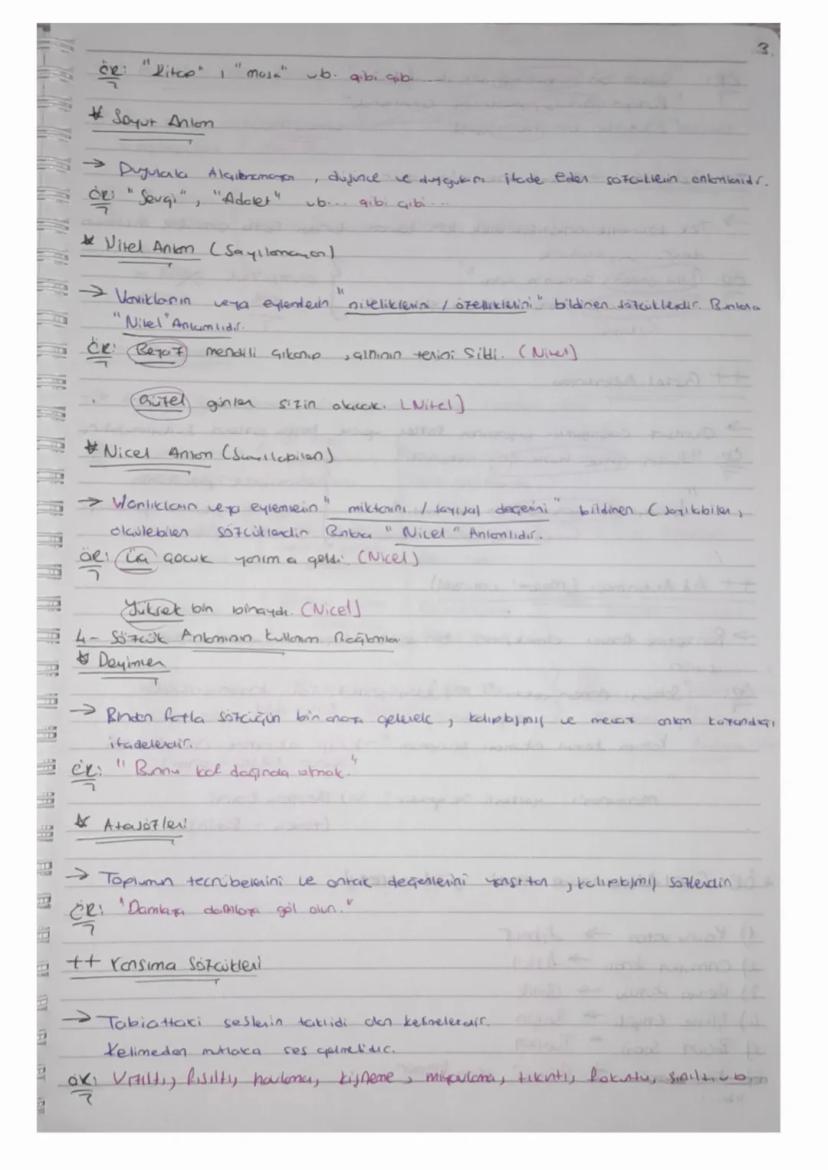 3.
ÖR: "Kitap", "masa" vb. gibi gibi...
* Soyut Anlam
→ Duyularla Algılanamayan, düşünce ve duyguları ifade eden sözcüklerin anlamlarıdır.
ÖR: "Sevgi", "Adalet" vb... gibi gibi...
* Nitel Anlam (Sayılamayan)
→ Varlıkların veya eylemlerin "niteliklerini / özelliklerini" bildiren sözcüklerdir. Bunlara
"Nitel" Anlamlıdır.
ÖR: Beyaz mendili çıkarıp, alnının terini sildi. (Nitel]
. Güzel günler sizin olacak. [Nitel]
* Nicel Anlam (Sayılabilen)
→ Varlıkların veya eylemlerin "miktarını / sayısal değerini" bildiren (sayılabilen,
ölçülebilen sözcüklerdir. Bunlara "Nicel" Anlamlıdır.
ÖR: Üç çocuk yanıma geldi. (Nicel]
Yüksek bir binaydı. (Nicel]
4- Sözcük Anlamının Kullanım Bağlamı
* Deyimler
→ Birden fazla sözcüğün bir araya gelerek, kalıplaşmış ve mecaz anlam kazandığı
ifadelerdir.
ÖR: "Burnu kaf dağında olmak."
* Atasözleri
→ Toplumun tecrübelerini ve ortak değerlerini yansıtan, kalıplaşmış sözlerdir.
ÖR: "Damlaya damlaya göl olur."
++ Yansıma Sözcükleri
→ Tabiattaki seslerin taklidi olan kelimelerdir.
Kelimeden mutlaka ses gelmelidir.
ÖR: Vızıltı, fısıltı, havlama, kişneme, miyavlama, tıkırtı, fokurtu, şırıltı vb